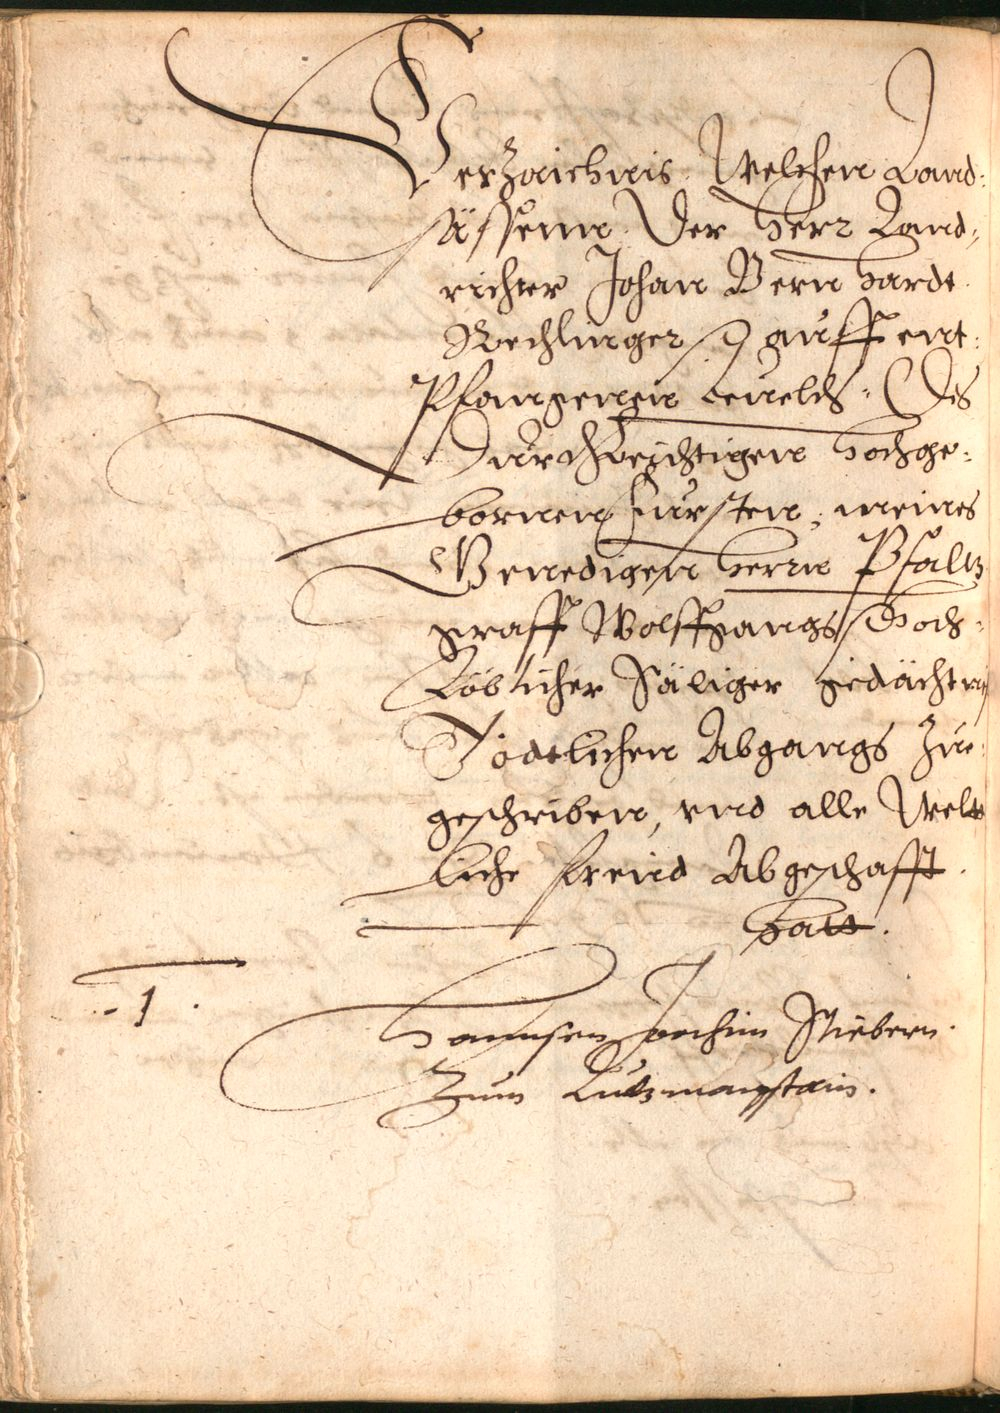 Verzaichnis. Welchen Land:
säßenn. Der Herr Land,
richter Johan Bernhardt
Rechlinger auff ent:
Pfangenen beuelch. Des
Durchleichtigen Hochge:
bornen Fürsten, meines
Genedigen Herrn Pfaltz
graff Wolffgangs Hoch:
Löblicher Säliger gedächtnis
Tödtlichen Abgangs Zue:
geschriben, vnd alle Welt
liche freud Abgeschafft
hatt.
.-1.
Hannsen Jochim Stiebern.
Zum Lutzmanstain.